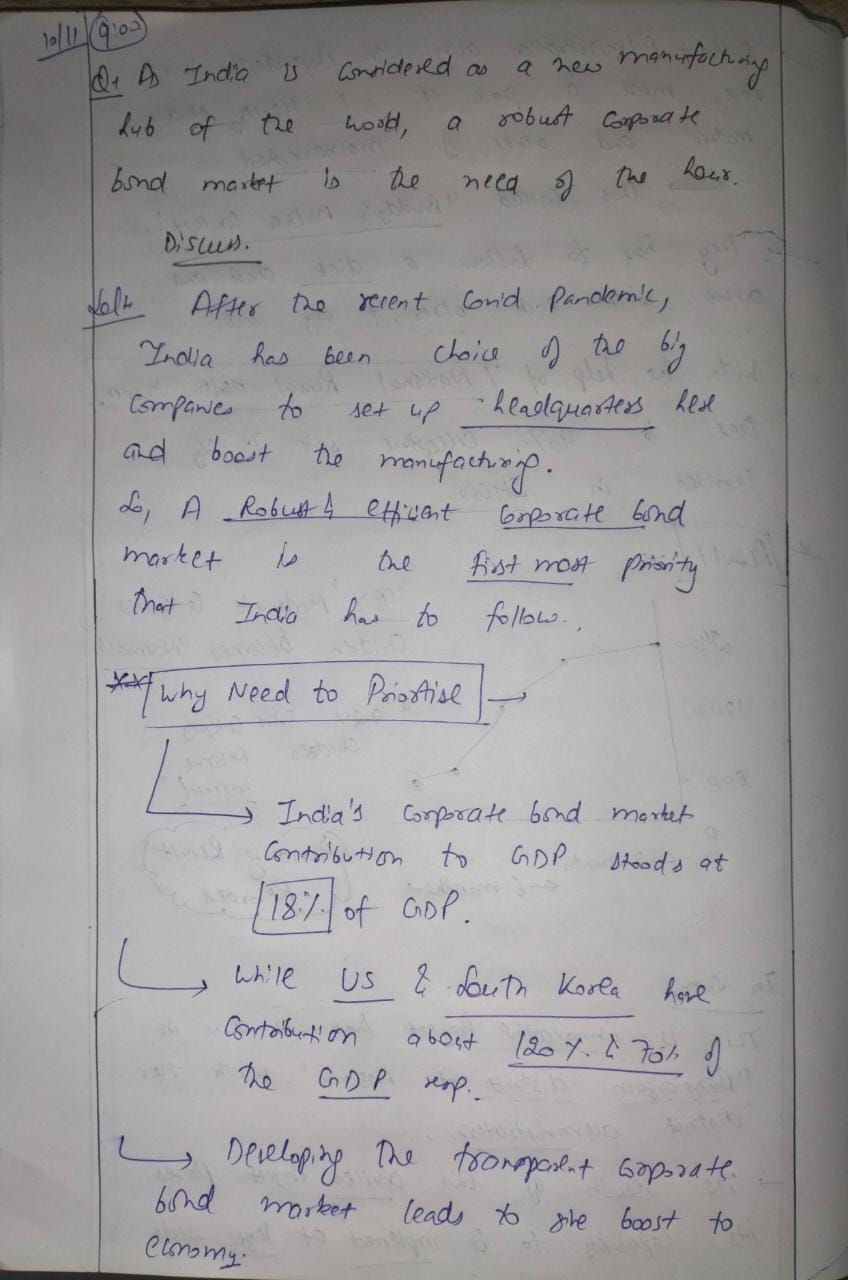 10/11 9:00
Q1 As India is considered as a new manufacturing
hub of the world, a robust corporate
bond market is the need of the hour.
Discuss.
Sol: After the recent Covid Pandemic,
India has been choice of the big
Companies to set up headquarters here
and boost the manufacturing.
So, A Robust & efficient Corporate bond
market is the first most priority
that India has to follow.
** Why Need to Priortise →
→ India's corporate bond market
Contribution to GDP stoods at
18% of GDP.
→ While US & South Korea have
Contribution about 120% & 70% of
the GDP resp.
→ Developing the transparent corporate
bond market leads to give boost to
economy.